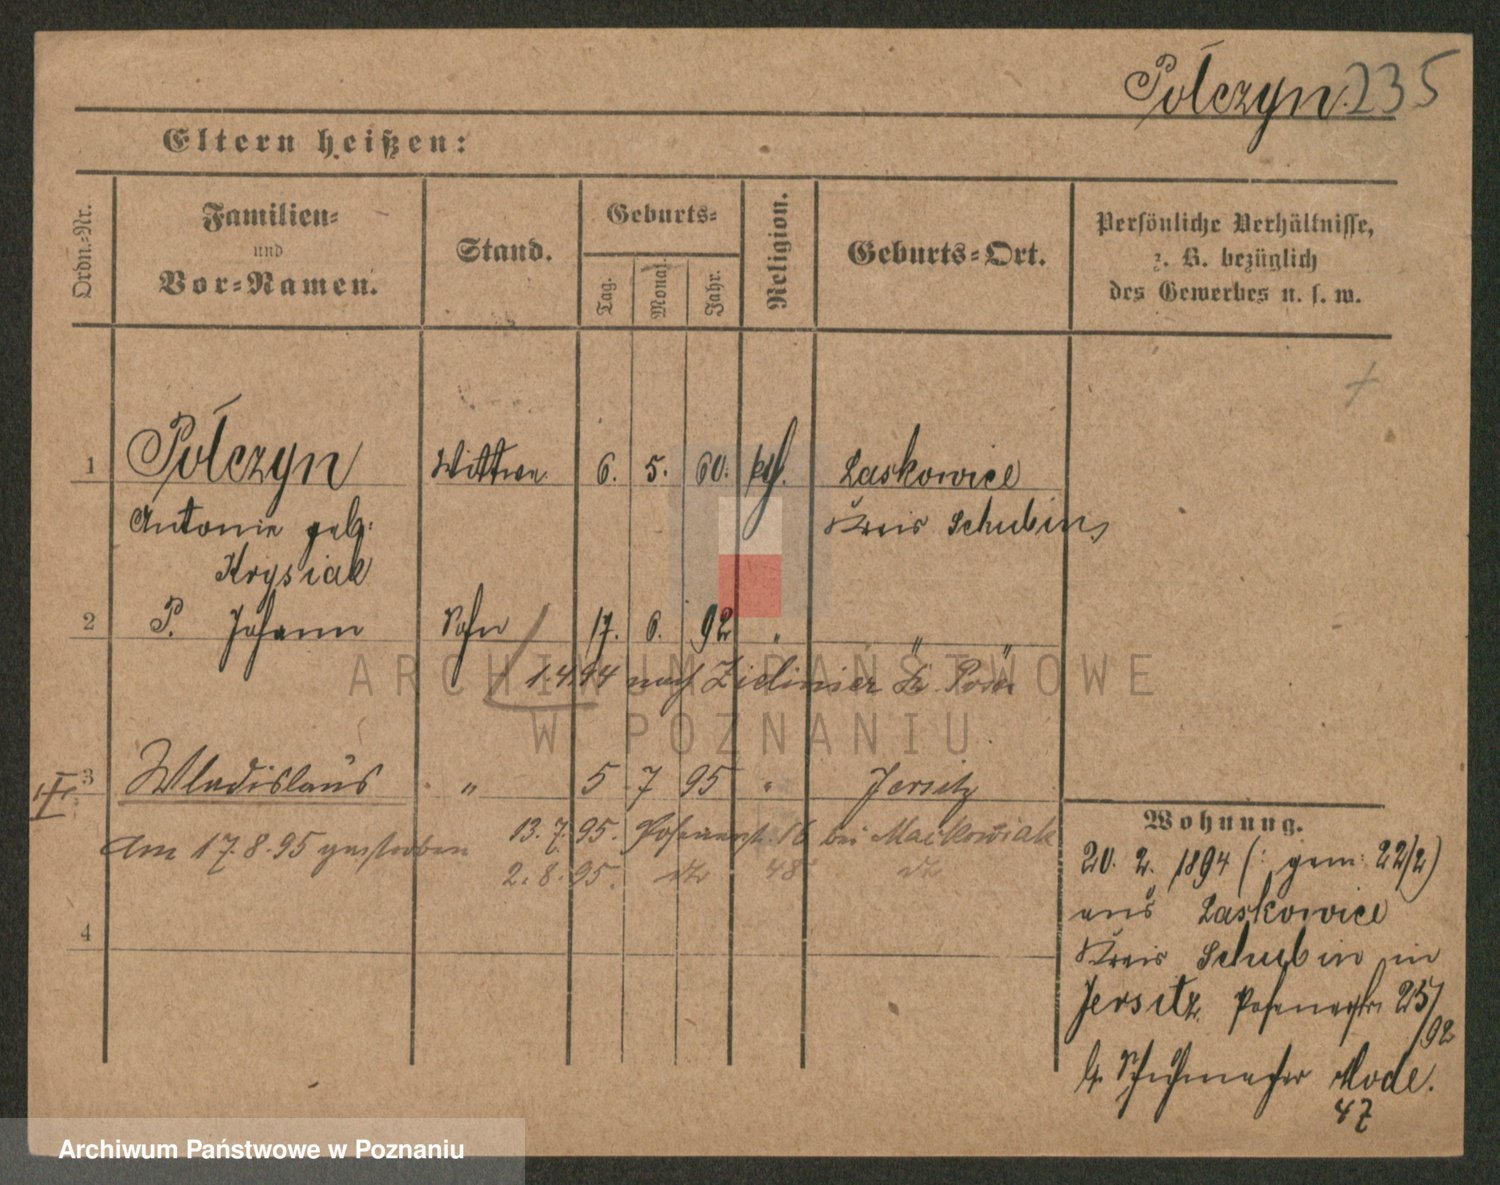 Pólczyn. 235
Eltern heißen:
Ordn.-Nr.
Familien-
und
Vor-Namen.
Stand.
Geburts-
Tag.
Monat.
Jahr.
Religion.
Geburts-Ort.
Persönliche Verhältnisse,
z. B. bezüglich
des Gewerbes u. s. w.
1 Pólczyn Wittwe 6. 5. 60. kth. Laskowice
Antonie geb: Kreis Schubin,
Krysiak
2 P. Johann Sohn 17. 6. 92 " " "
1.4.94 nach Zielinier
3 Wladislaus " 5 7 95 " Jersitz
13. 7. 95. Posenerstr. 16 bei Mackowiak
Am 17.8.95 gestorben
2. 8. 95. dto 48 dto
4
Wohnung.
20. 2. 1894 (: gem: 22/2)
aus Laskowice
Kreis Schubin in
Jersitz Posenerstr. 25/
92
b. Schuhmacher Mode.
47
ARCHIWUM PAŃSTWOWE
W POZNANIU
Archiwum Państwowe w Poznaniu